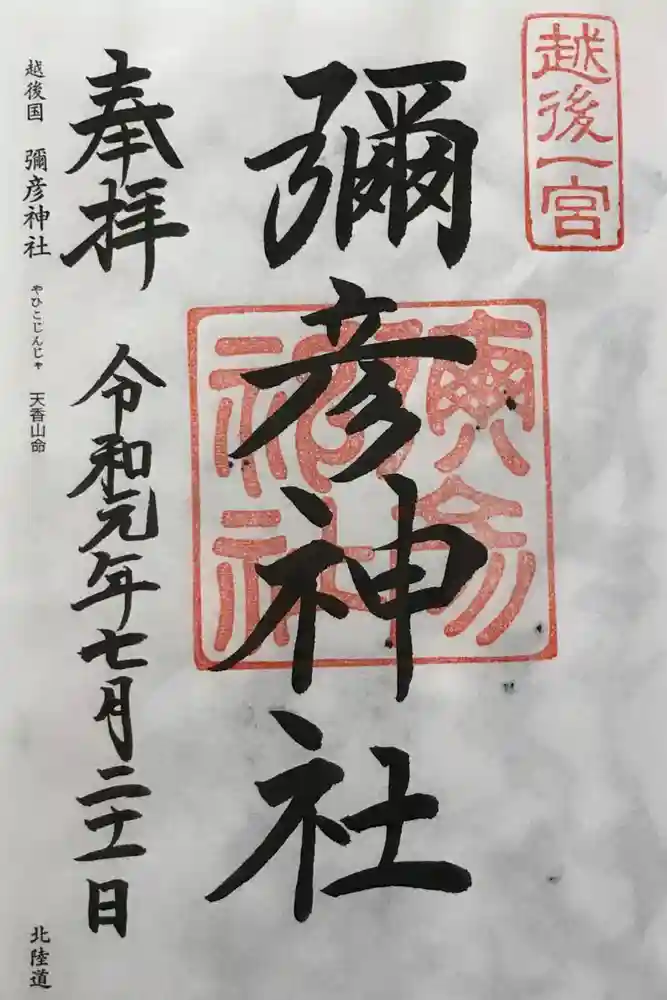 越後一宮
彌彦神社
奉拝
令和元年七月二十一日
越後国 彌彦神社 やひこじんじゃ 天香山命 北陸道